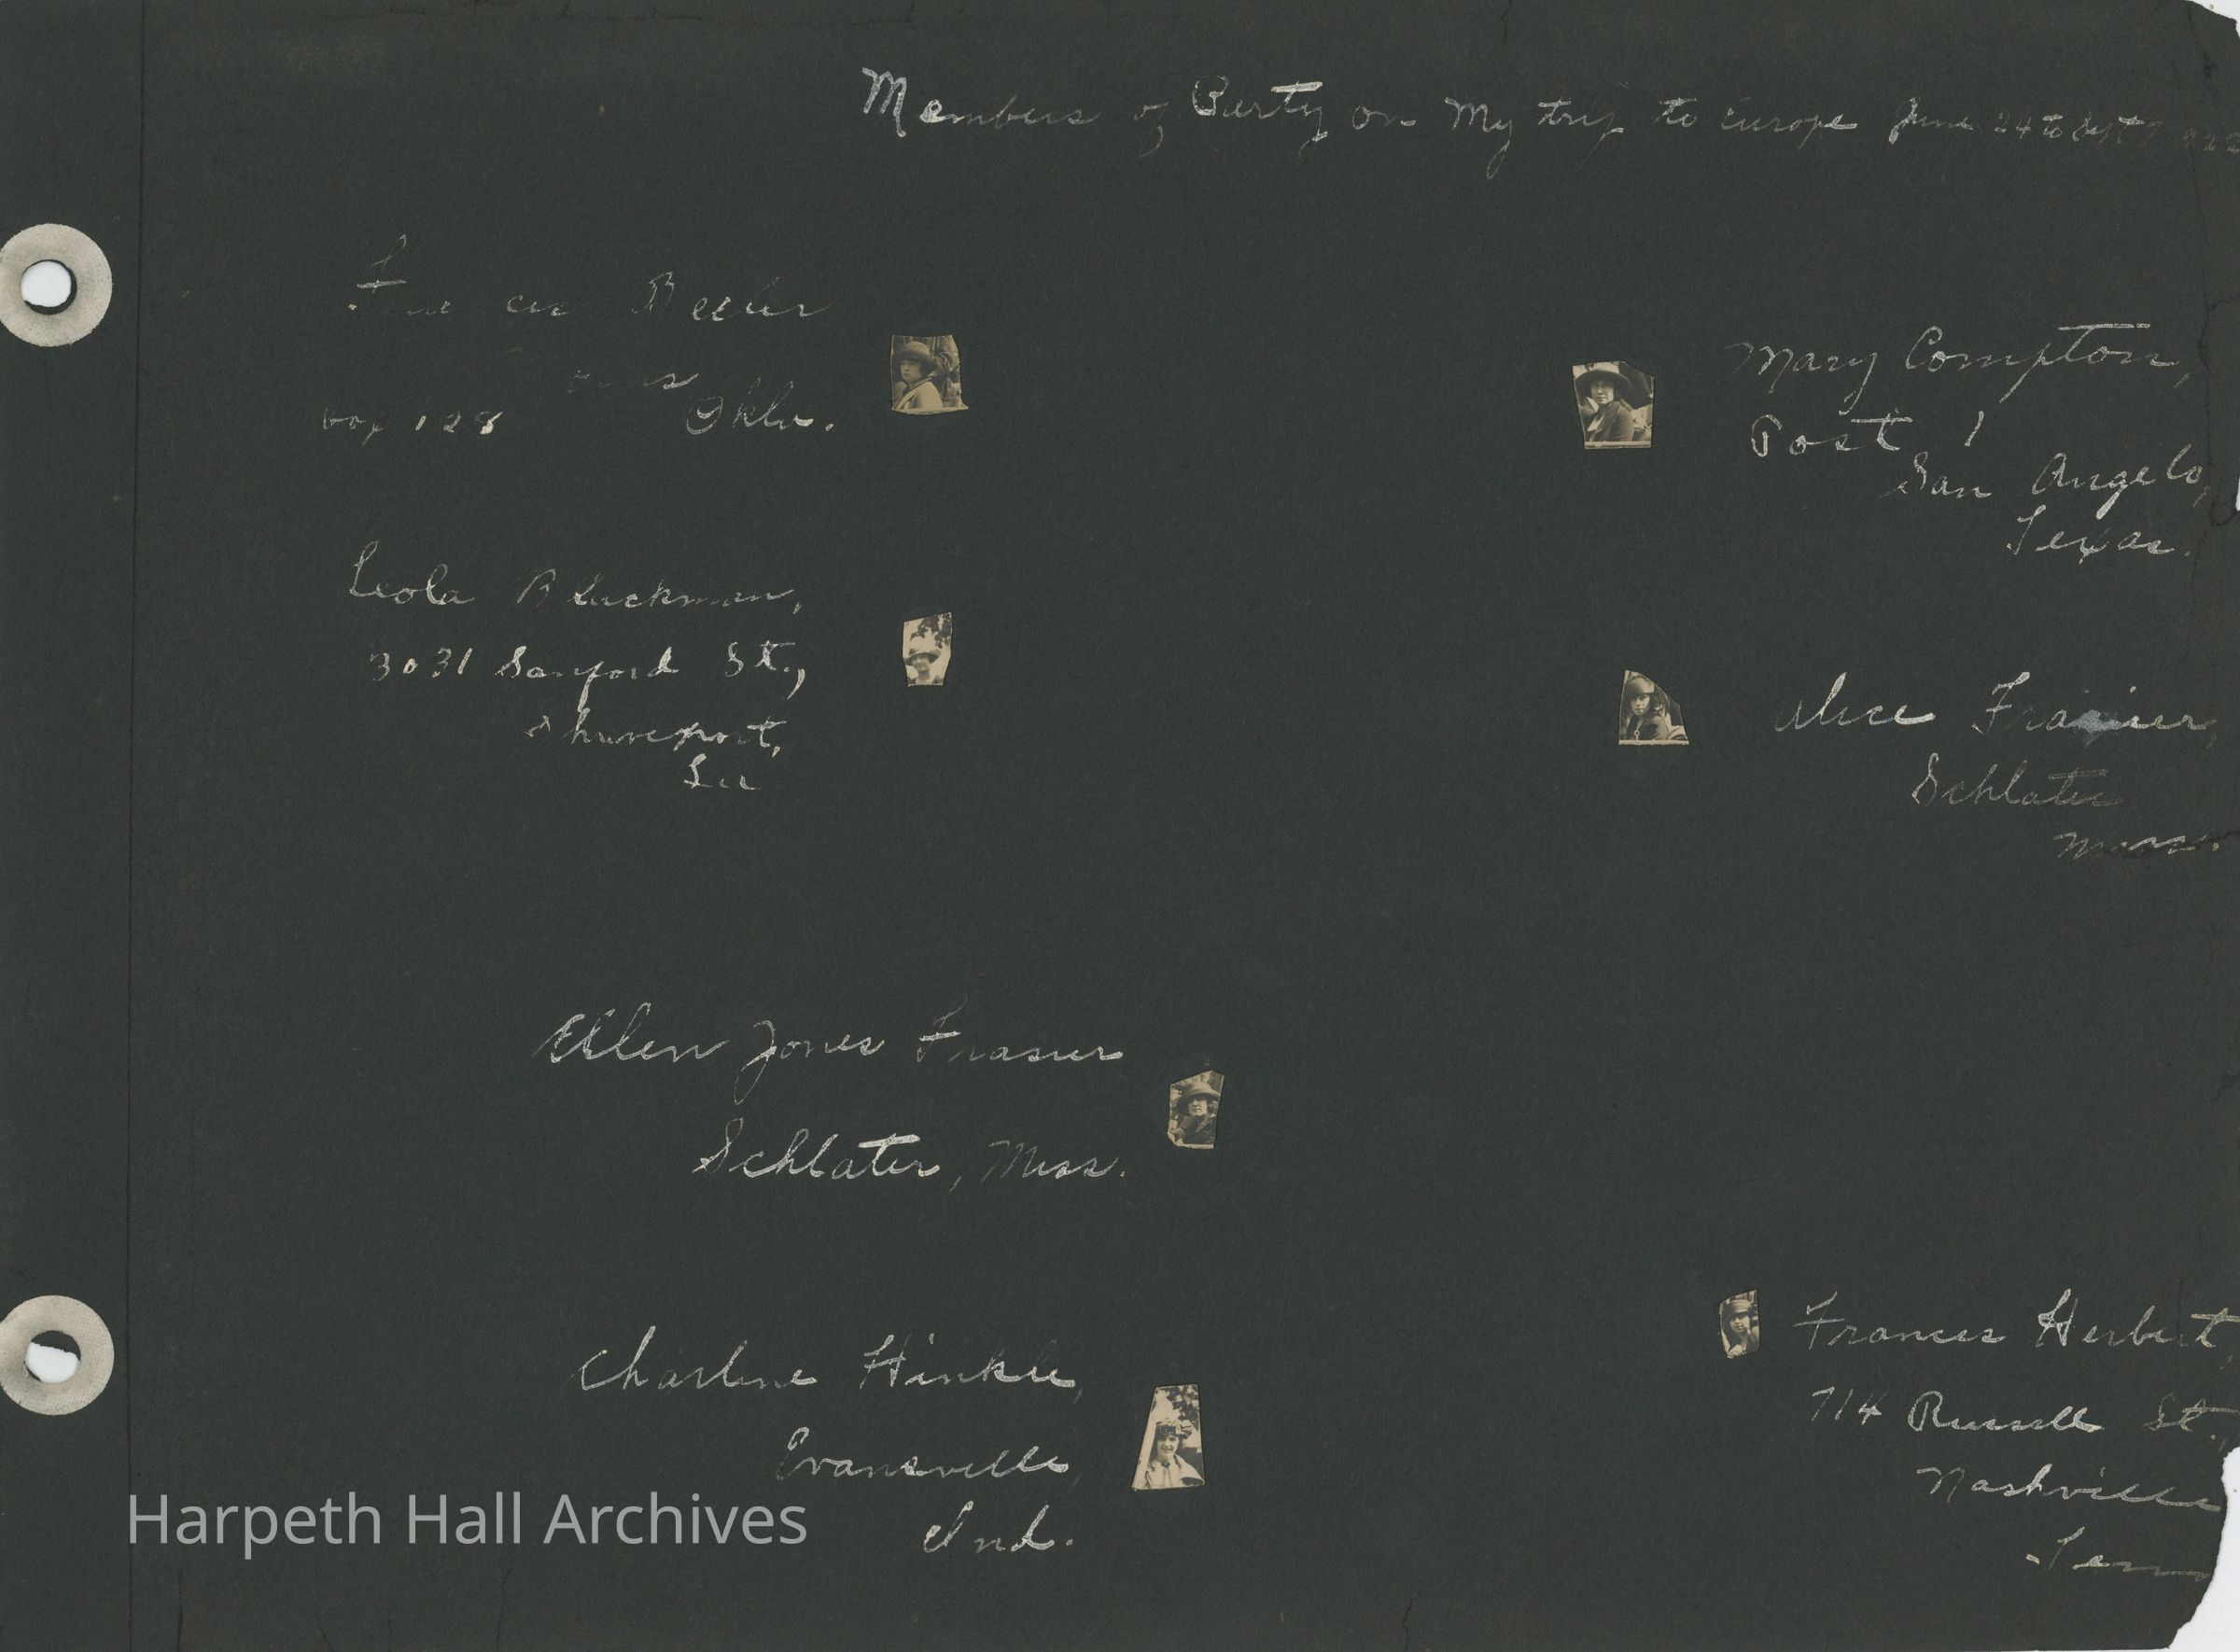 Members of Party on My trip to Europe June 24 to Sept
Beeler
Box 128 Okla.
Mary Compton,
Post 1
San Angelo,
Texas.
Leola Blackman,
3031 Sanford St.,
Shreveport,
La
Alice Frasier,
Schlater
Miss.
Ellen Jones Frasier
Schlater, Miss.
Charlene Hinkle,
Evansville,
Ind.
Frances Herbert,
714 Russell St.,
Nashville
Tenn
Harpeth Hall Archives